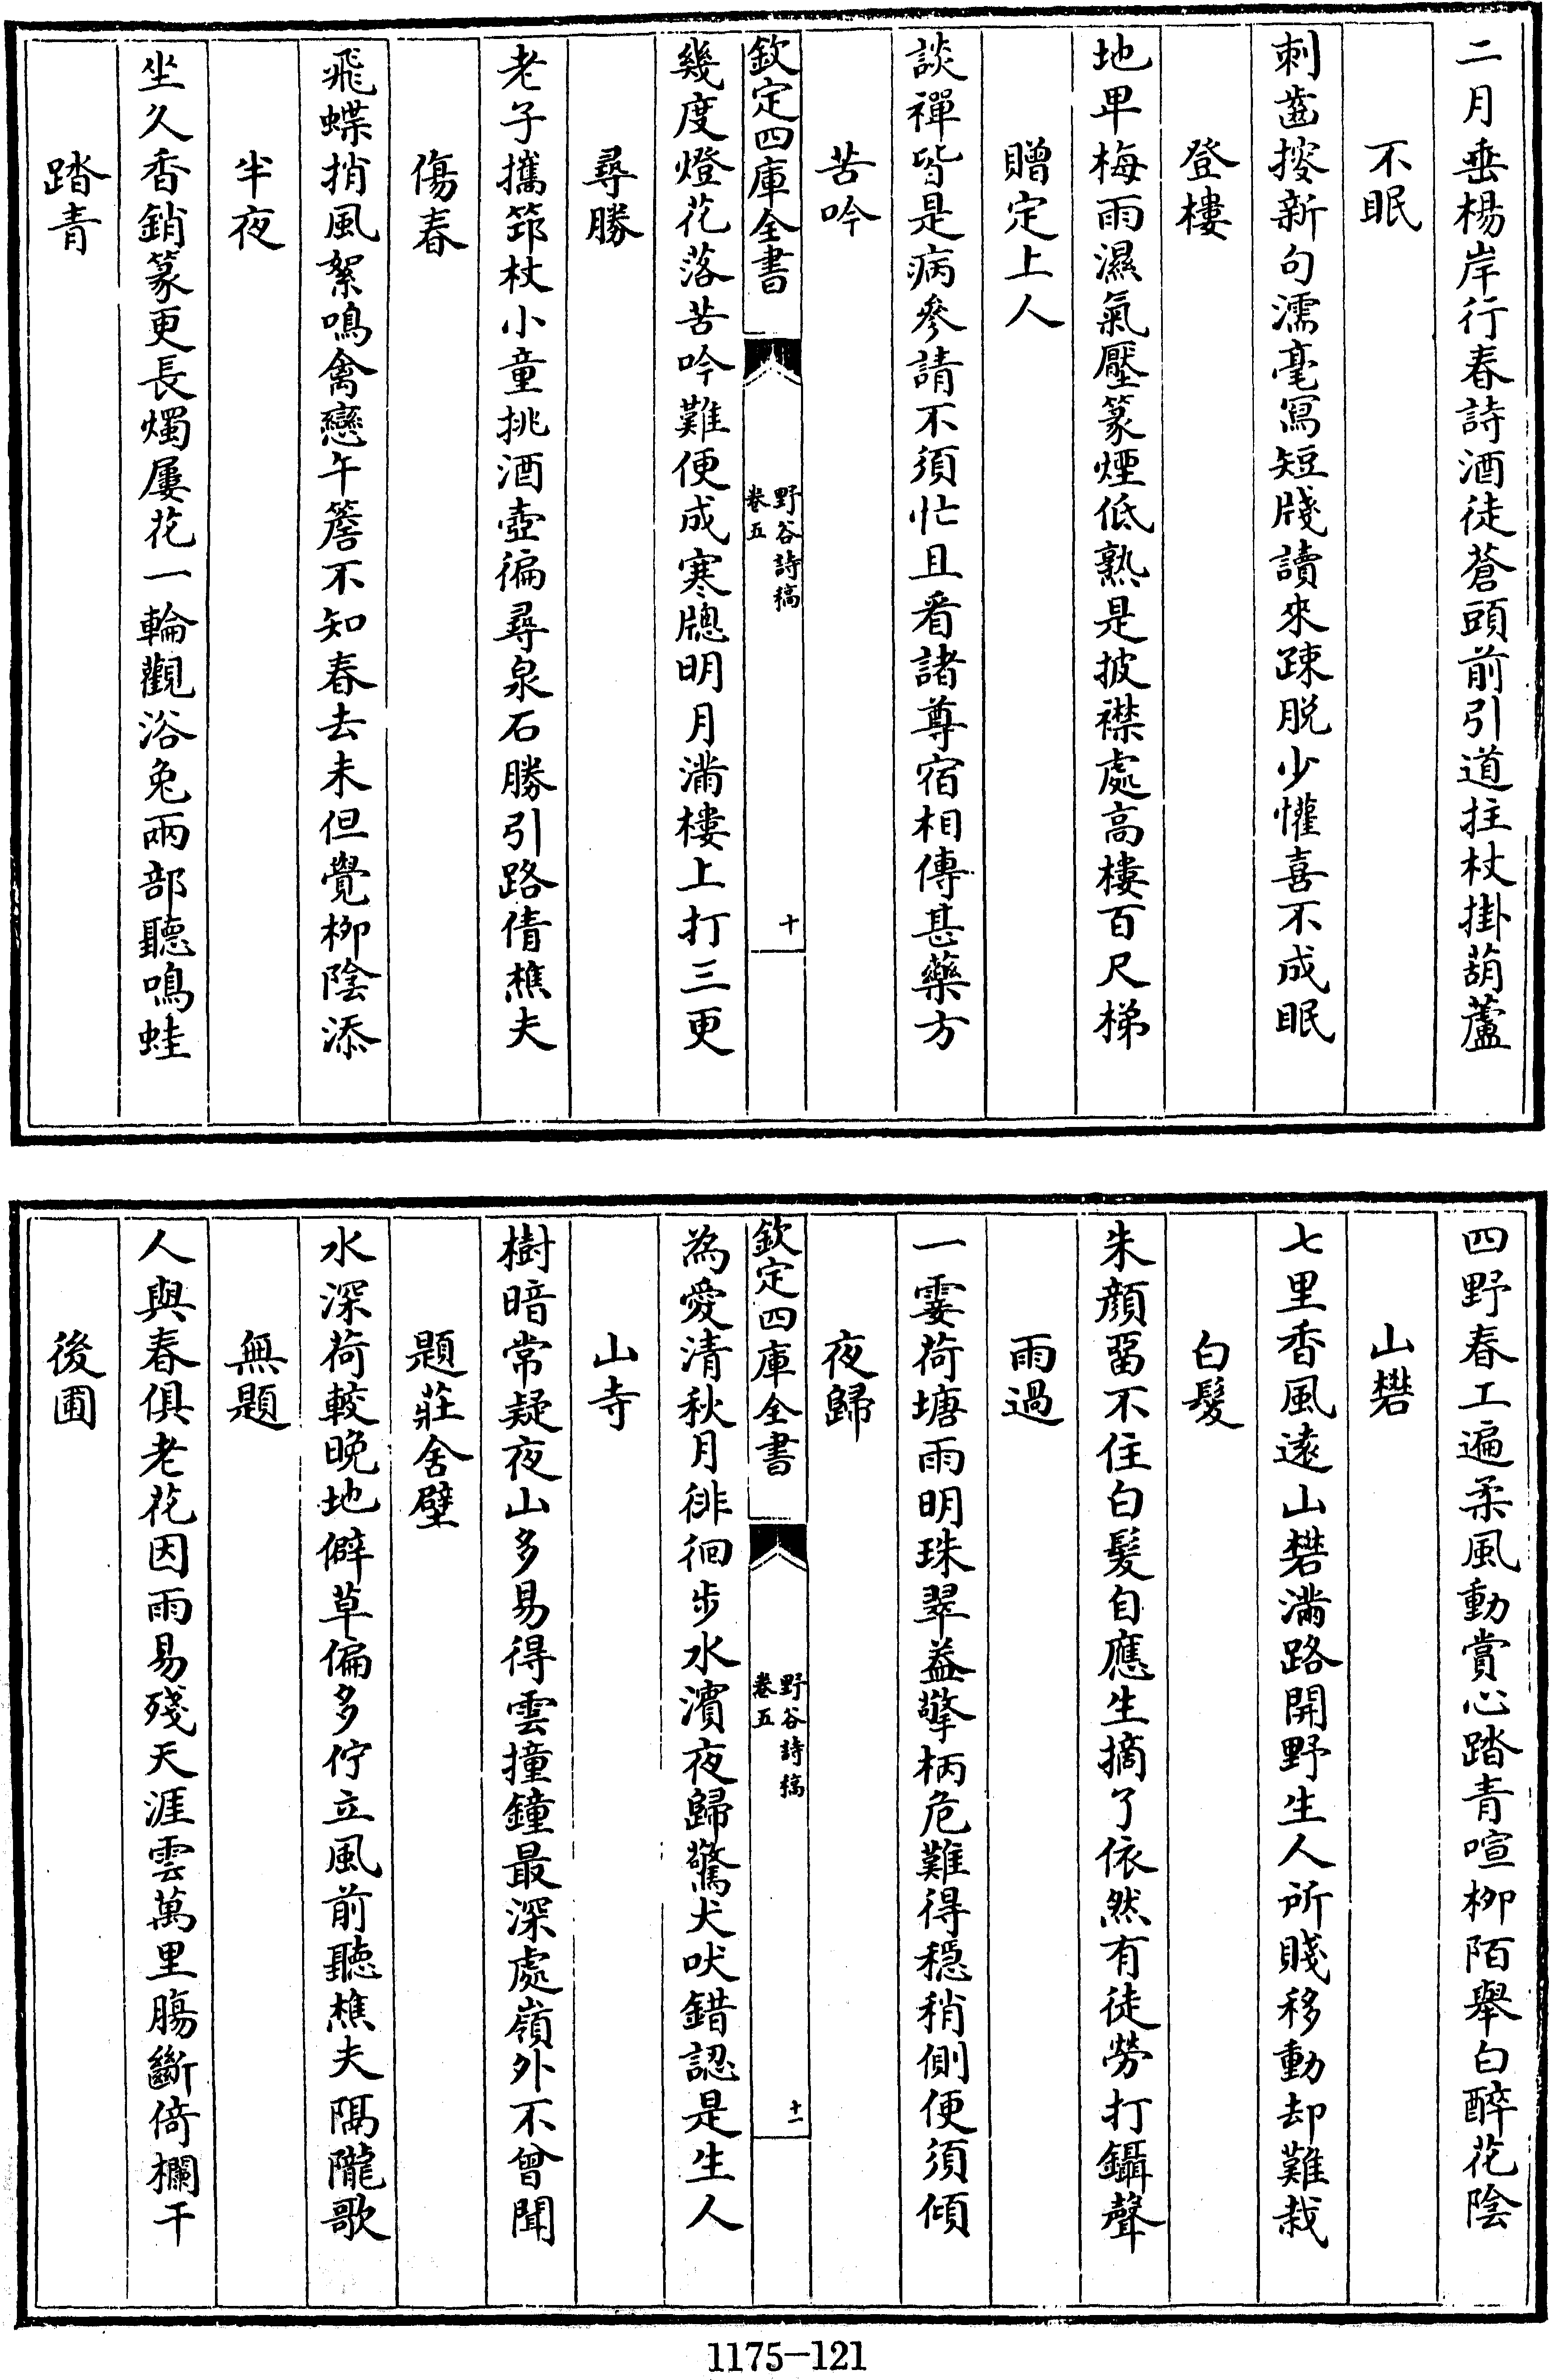 二月垂楊岸行春詩酒徒蒼頭前引道拄杖掛葫蘆
不眠
刺齒挼新句濡毫寫短牋讀來踈脱少懽喜不成眠
登樓
地卑梅雨濕氣壓篆煙低熟是披襟處高樓百尺梯
贈定上人
談禪皆是病參請不須忙且看諸尊宿相傳甚藥方
苦吟
欽定四庫全書
野谷詩稿
卷五
十
幾度燈花落苦吟難便成寒牕明月滿樓上打三更
尋勝
老子攜筇杖小童挑酒壺徧尋泉石勝引路倩樵夫
傷春
飛蝶捎風絮鳴禽戀午簷不知春去未但覺栁陰添
半夜
坐久香銷篆更長燭屢花一輪觀浴兔兩部聽鳴蛙
踏青
四野春工遍柔風動賞心踏青喧栁陌舉白醉花陰
山礬
七里香風遠山礬滿路開野生人所賤移動却難栽
白髮
朱顔留不住白髮自應生摘了依然有徒勞打鑷聲
雨過
一霎荷塘雨明珠翠蓋擎柄危難得穩稍側便須傾
夜歸
欽定四庫全書
野谷詩稿
卷五
十一
為愛清秋月徘徊步水濱夜歸驚犬吠錯認是生人
山寺
樹暗常疑夜山多易得雲撞鐘最深處嶺外不曾聞
題莊舍壁
水深荷較晚地僻草偏多佇立風前聽樵夫隔隴歌
無題
人與春俱老花因雨易殘天涯雲萬里腸斷倚欄干
後圃
1175-121